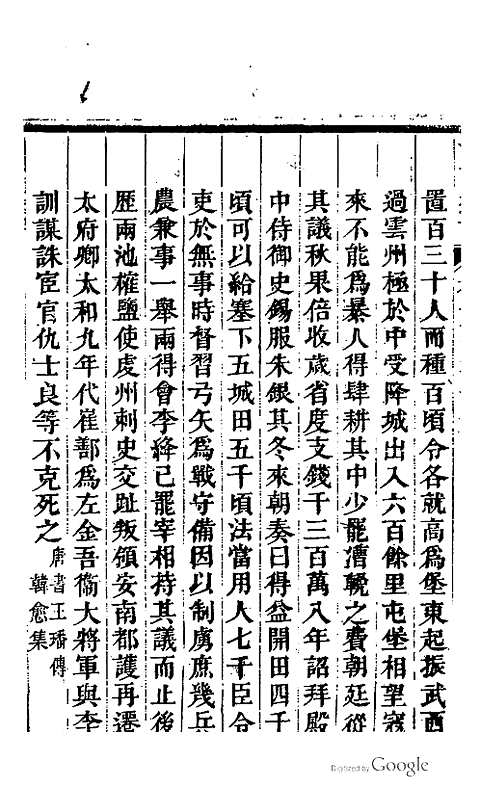 置百三十人而種百頃令各就高爲堡東起振武西
過雲州極於中受降城出入六百餘里屯堡相望寇
來不能爲暴人得肆耕其中少罷漕輓之費朝廷從
其議秋果倍收歲省度支錢千三百萬八年詔拜殿
中侍御史錫服朱銀其冬來朝奏曰得益開田四千
頃可以給塞下五城田五千頃法當用人七千臣令
吏於無事時督習弓矢爲戰守備因以制虜庶幾兵
農兼事一舉兩得會李絳已罷宰相持其議而止後
歷兩池榷鹽使虔州刺史交趾叛領安南都護再遷
太府卿太和九年代崔鄯爲左金吾衞大將軍與李
訓謀誅宦官仇士良等不克死之唐書王璠傳
韓愈集
Digitized by Google